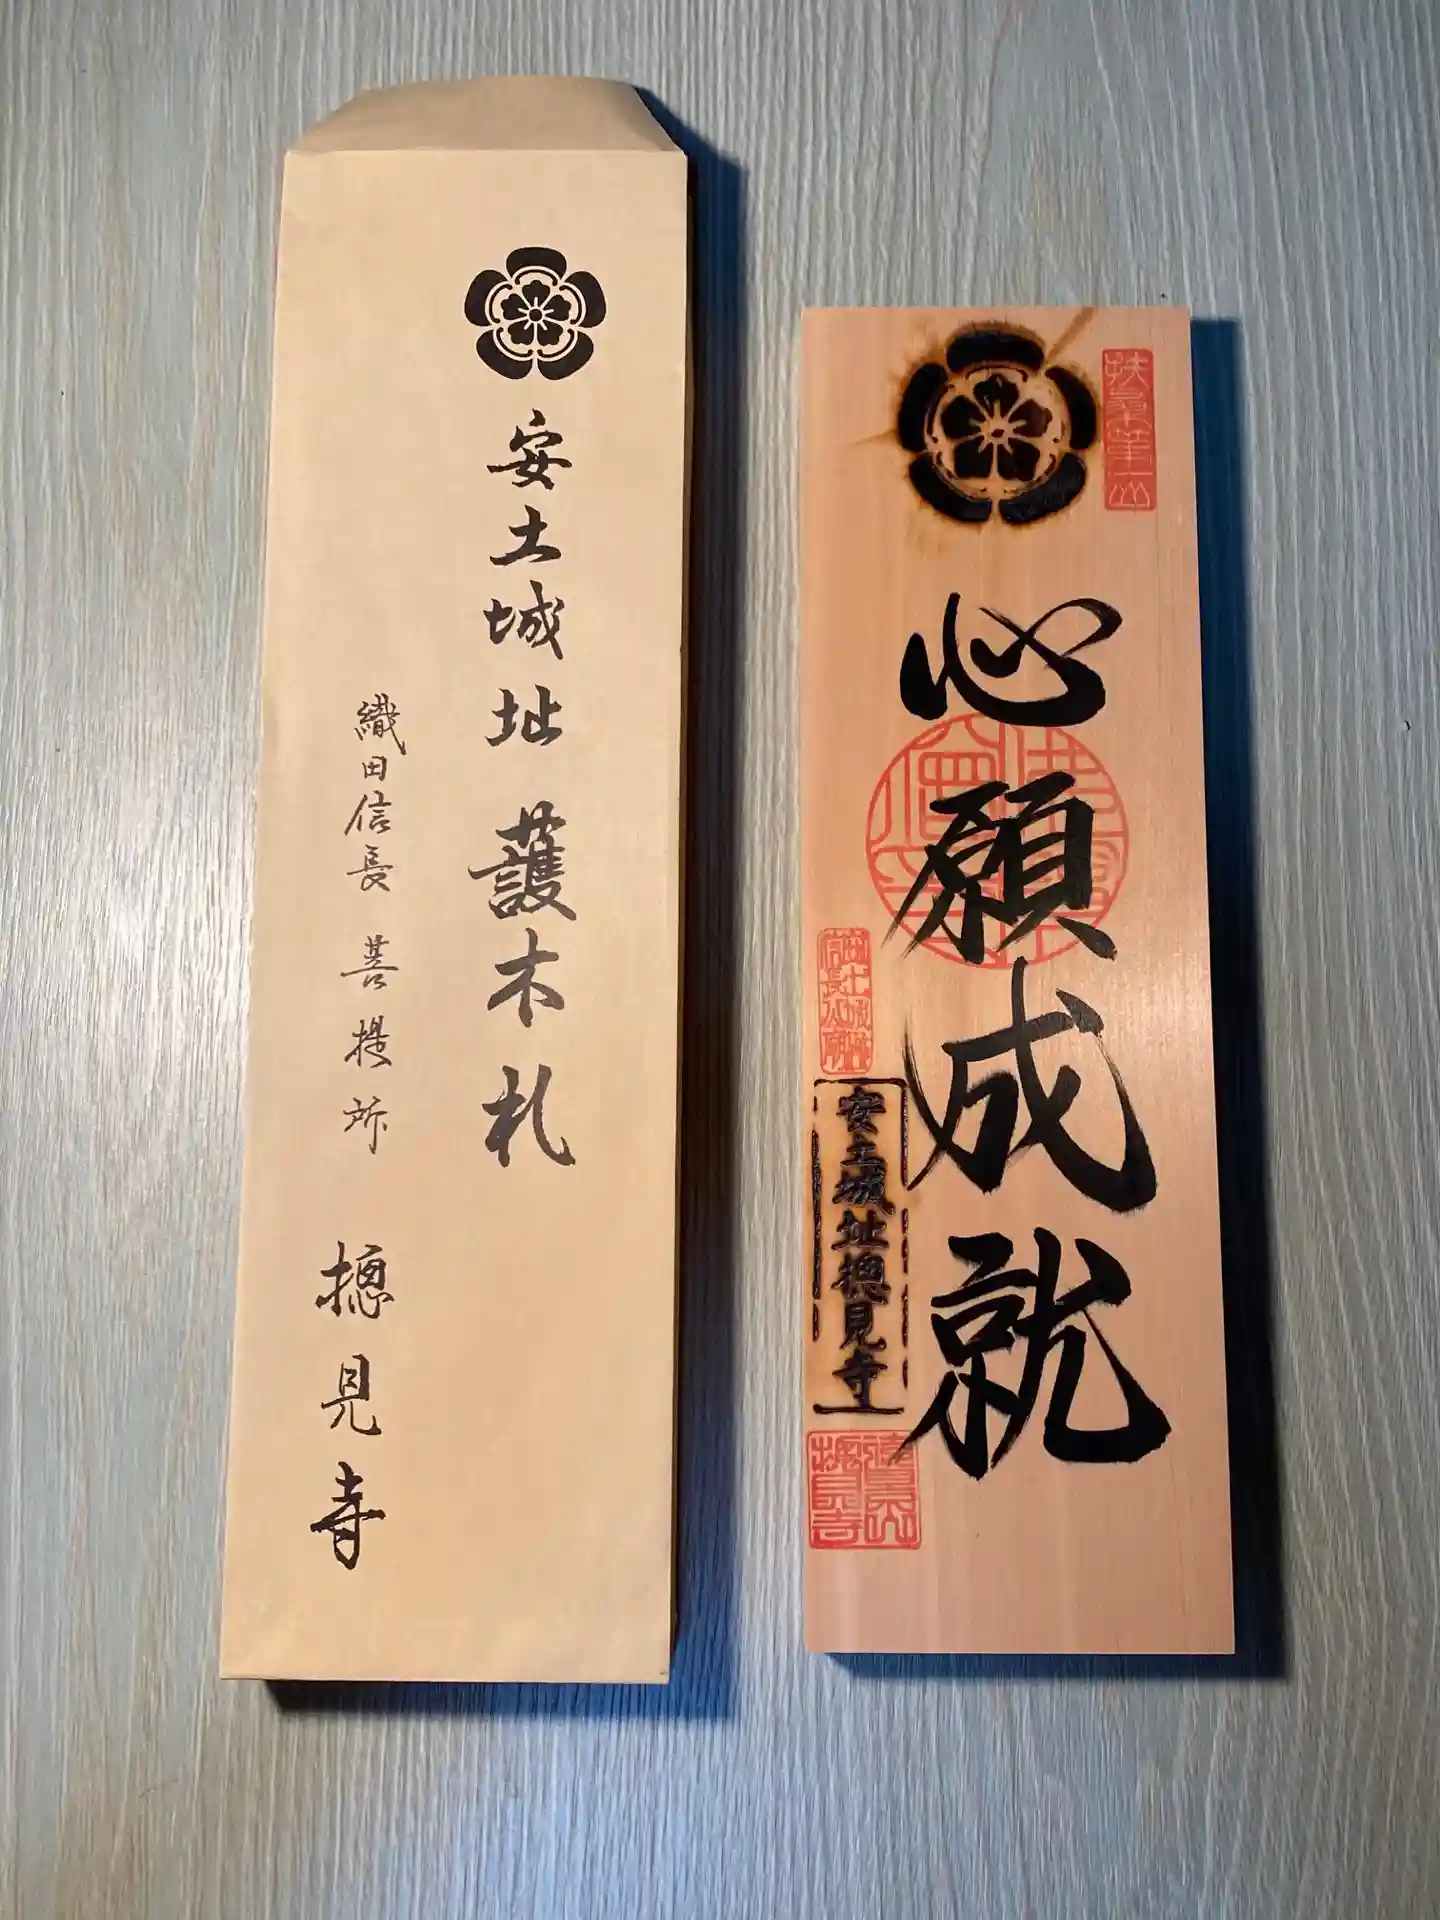 安土城址 護木札
織田信長 菩提所 摠見寺
心願成就
安土城址摠見寺
摠見寺